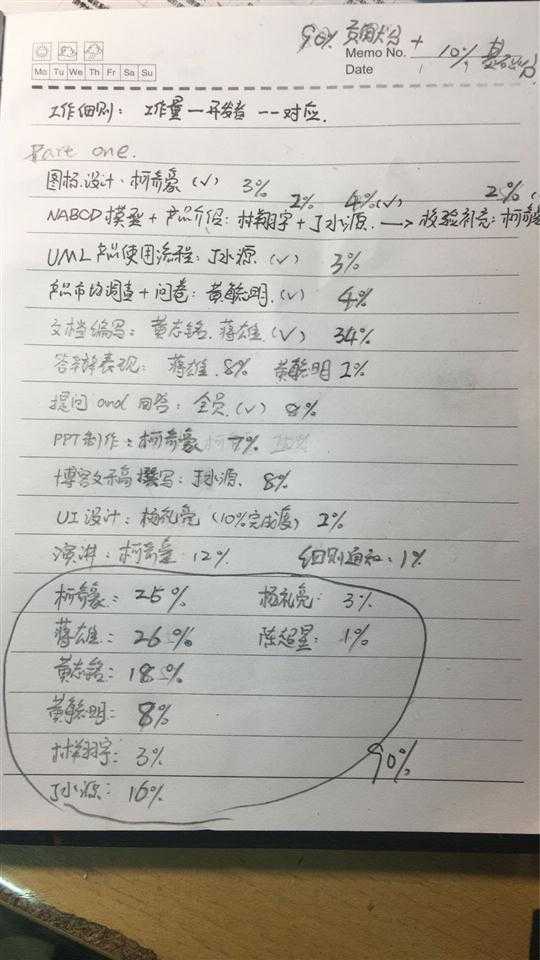 90% 贡献分 + 10% 基础分
Memo No.
Date
Mo Tu We Th Fr Sa Su
工作细则: 工作量—开发者 一一对应.
Part one.
图标设计: 柯奇豪 (√) 3%
2% 4%(√) 2%
NABCD模型 + 产品介绍: 林翔宇 + 丁水源. → 校验补充: 柯奇
UML产品使用流程: 丁水源. (√) 3%
产品市场调查 + 问卷: 黄毓明. (√) 4%
文档编写: 黄志铭. 蒋雄. (√) 34%
答辩表现: 蒋雄. 8% 黄毓明 2%
提问 and 回答: 全员. (√) 8%
PPT制作: 柯奇豪 7%
博客文稿撰写: 丁水源. 8%
UI设计: 杨礼亮 (10%完成度) 2%
演讲: 柯奇豪 12% 细则通知: 1%
柯奇豪: 25% 杨礼亮: 3%
蒋雄: 26% 陈超星: 1%
黄志铭: 18%
黄毓明: 8%
林翔宇: 3%
90%
丁水源: 16%